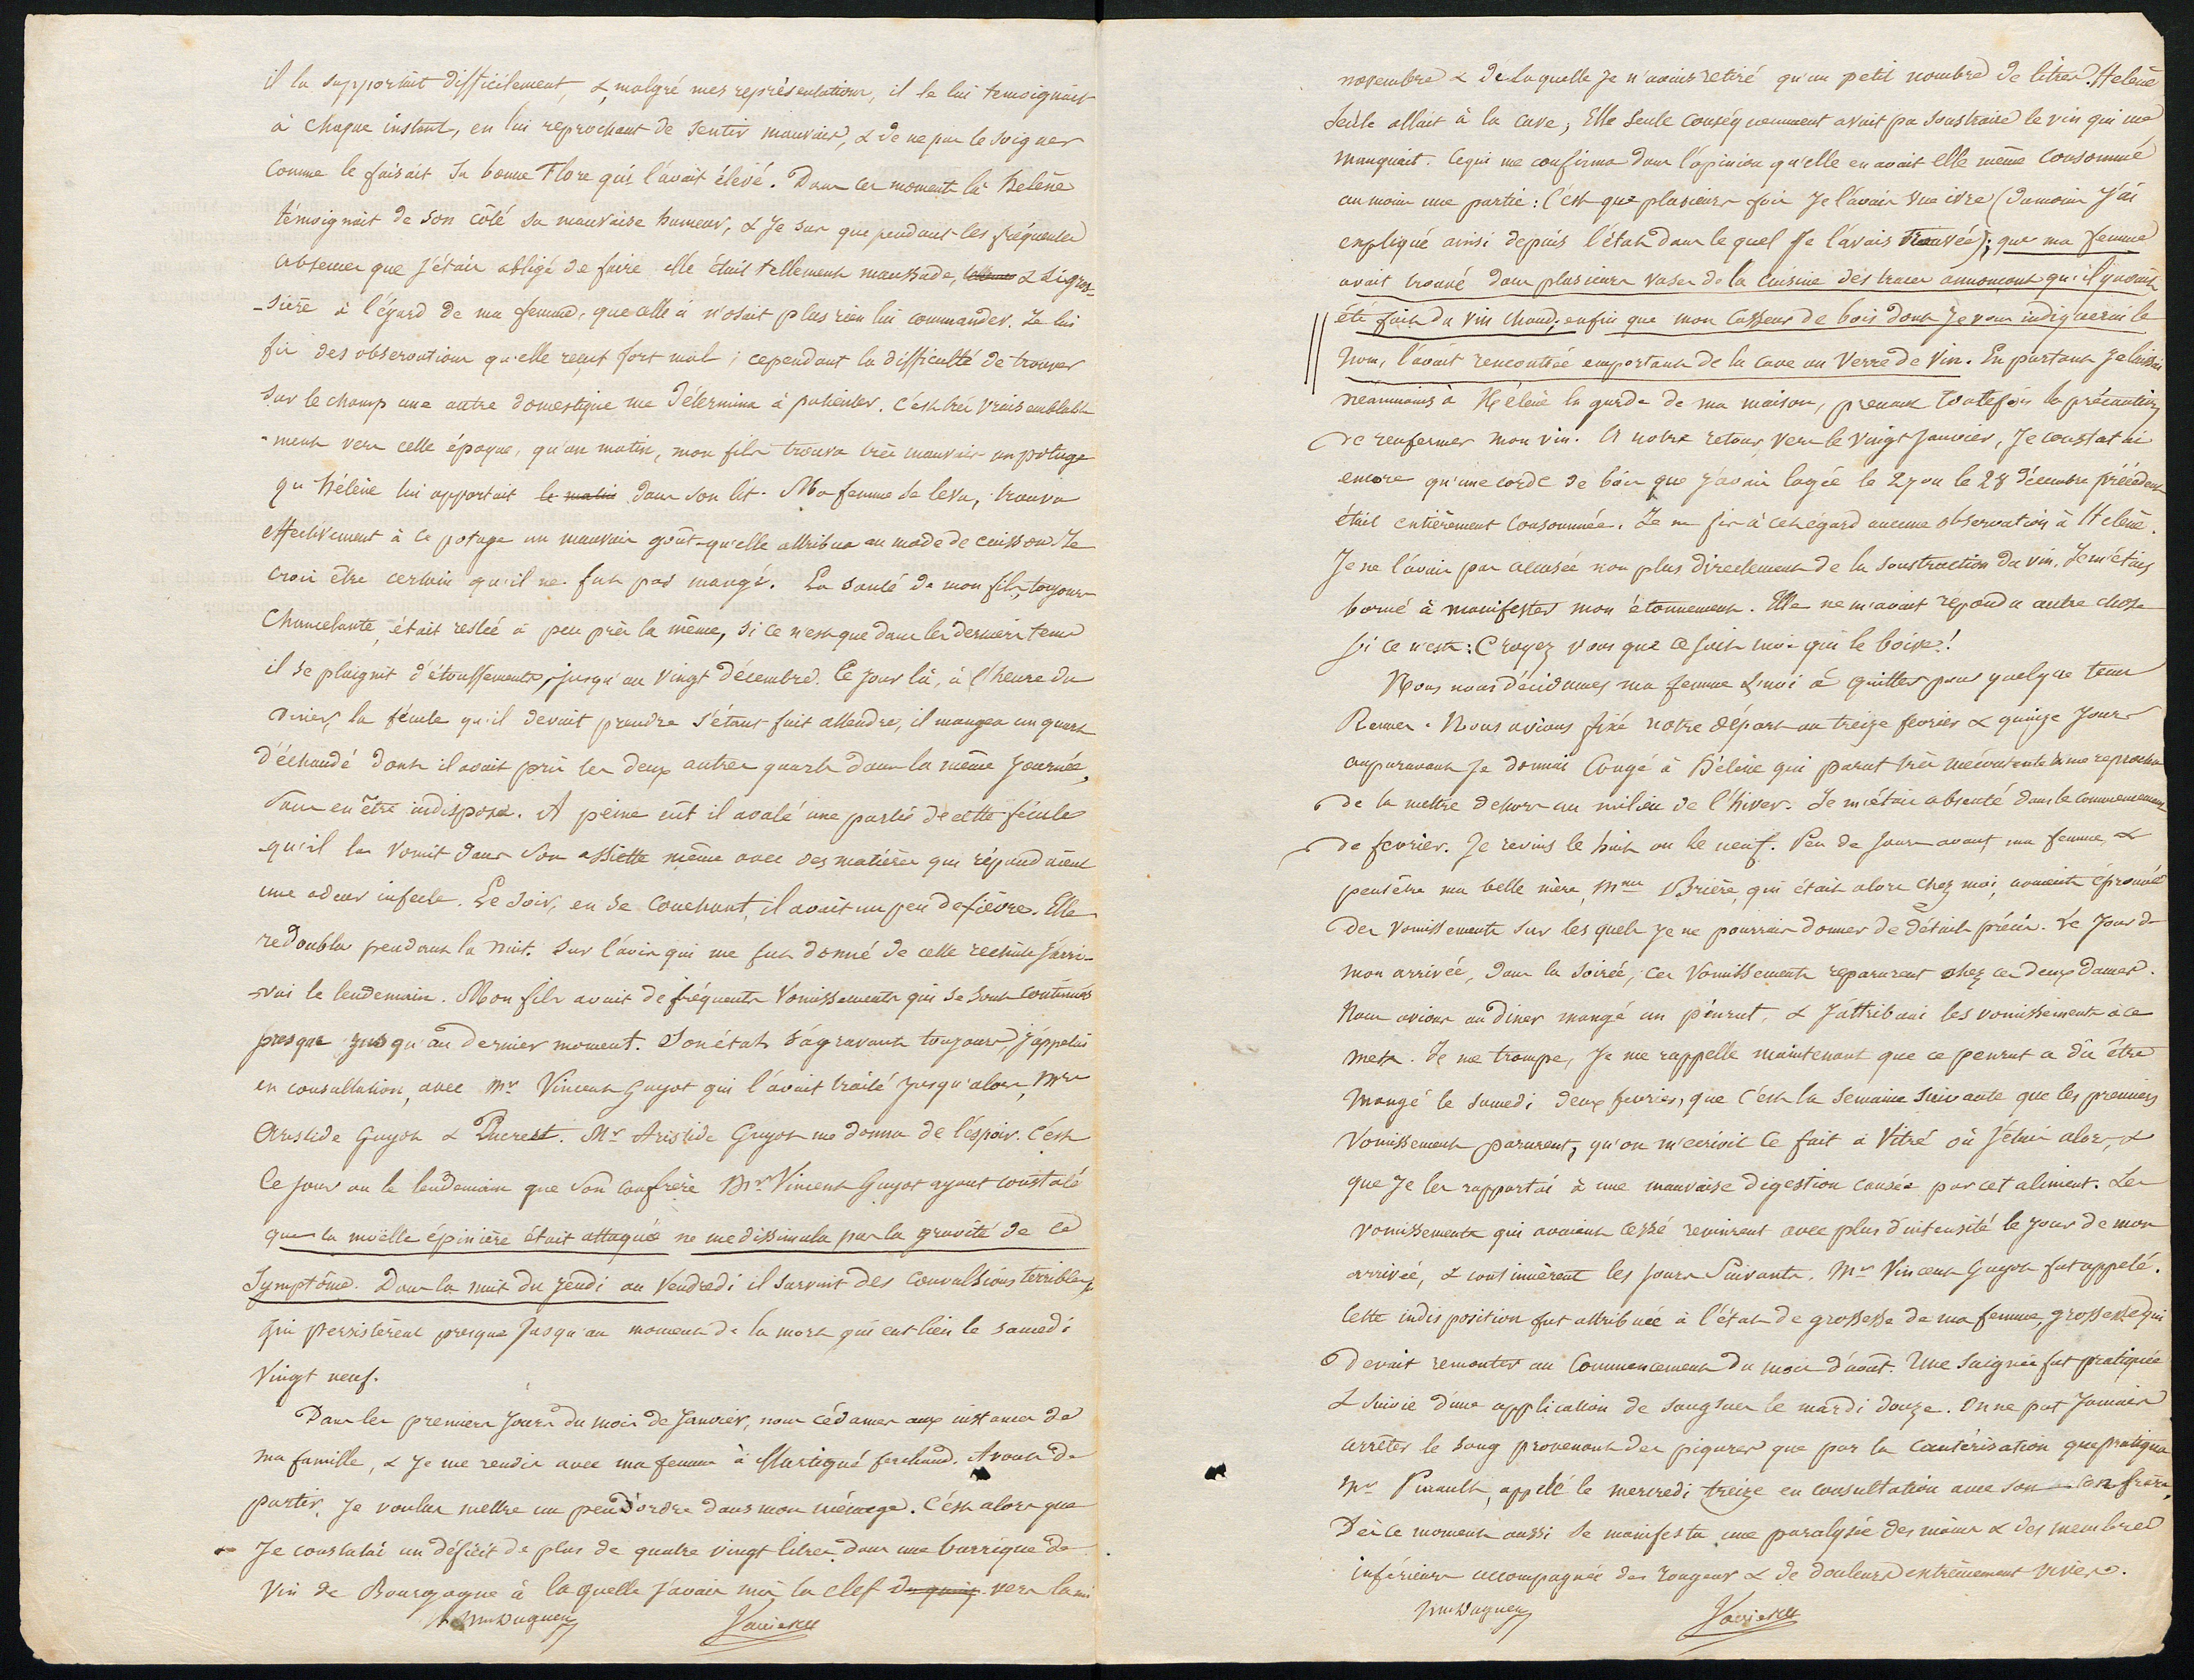 il la supportait difficilement, & malgré mes représentations, il le lui temoignait
à chaque instant, en lui reprochant de sentir mauvais, & de ne pas le soigner
comme le faisait sa bonne Flore qui l'avait élevé. Dans ces moments là Helène
témoignait de son côté sa mauvaise humeur, & je sus que pendant les fréquentes
absences que j'étais obligé de faire elle était tellement maussade, & si gros-
-sière à l'égard de ma femme, que celle ci n'osait plus rien lui commander. Je lui
fis des observations qu'elle reçut fort mal ; cependant la difficulté de trouver
sur le champ une autre domestique me détermina à patienter. C'est très vraisemblable
-ment vers cette époque, qu'un matin, mon fils trouva très mauvais un potage
qu'hélène lui apportait le matin dans son lit. Ma femme se leva, trouva
effectivement à ce potage un mauvais goût qu'elle attribua au mode de cuisson. Je
crois être certain qu'il ne fut pas mangé. La santé de mon fils, toujours
chancelante, était restée à peu près la même, si ce n'est que dans les derniers tems
il se plaignit d'étouffements, jusqu'au vingt décembre. Ce jour là, à l'heure du
diner, la fécule qu'il devait prendre s'étant fait attendre, il mangea un quart
d'échaudé dont il avait pris les deux autres quarts dans la même journée,
sans en être indisposé. A peine eût il avalé une partie de cette fécule
qu'il la vomit dans son assiette même avec des matières qui répandaient
une odeur infecte. Le soir, en se couchant, il avait un peu de fièvre. Elle
redoubla pendant la nuit. Sur l'avis qui me fut donné de cette rechute j'arri-
-vai le lendemain. Mon fils avait de fréquents vomissements qui se sont continués
presque jusqu'au dernier moment. Son état s'agravant toujours, j'appelai
en consultation, avec Mr Vincent Guyot qui l'avait traité jusqu'alors, Mrs
Aristide Guyot & Ducrest. Mr Aristide Guyot me donna de l'espoir. C'est
ce jour ou le lendemain que son confrère Mr Vincent Guyot ayant constaté
que la moëlle épinière était attaquée ne me dissimula pas la gravité de ce
symptôme. Dans la nuit du jeudi au vendredi il survint des convulsions terribles,
qui persistèrent presque jusqu'au moment de la mort qui eut lieu le samedi
vingt neuf.
Dans les premiers jours du mois de janvier, nous cédames aux instances de
ma famille, & je me rendis avec ma femme à Martigné ferchaud. Avant de
partir, je voulus mettre un peu d'ordre dans mon ménage. C'est alors que
je constatai un déficit de plus de quatre vingt litres dans une barrique de
vin de Bourgogne à laquelle j'avais mis la clef vers la mi
novembre & de laquelle je n'avais retiré qu'un petit nombre de litres. Helène
seule allait à la cave ; Elle seule conséquemment avait pu soustraire le vin qui me
manquait. Ce qui me confirma dans l'opinion qu'elle en avait elle même consommé
au moins une partie : C'est que plusieurs fois je l'avais vue ivre (du moins j'ai
expliqué ainsi depuis l'état dans lequel je l'avais trouvée) ; que ma femme
avait trouvé dans plusieurs vases de la cuisine des traces annonçant qu'il y avait
été fait du vin chaud ; enfin que mon casseur de bois dont je vous indiquerai le
nom, l'avait rencontrée emportant de la cave un verre de vin. En partant je laissai
néanmoins à Hélène la garde de ma maison, prenant toutefois la précaution
de renfermer mon vin. A notre retour, vers le vingt janvier, je constatai
encore qu'une corde de bois que j'avais logée le 27 ou le 28 décembre précédent
était entièrement consommée. Je ne fis à cet égard aucune observation à Helène.
Je ne l'avais pas accusée non plus directement de la soustraction du vin. Je m'étais
borné à manifester mon étonnement. Elle ne m'avait répondu autre chose
si ce n'est : Croyez vous que ce soit moi qui le boive !
Nous nous décidames ma femme & moi à quitter pour quelque tems
Rennes. Nous avions fixé notre départ au treize fevrier & quinze jours
auparavant je donnai congé à Hélène qui parut très mécontente & me reprocha
de la mettre dehors au milieu de l'hiver. Je m'étais absenté dans le commencement
de fevrier. Je revins le huit ou le neuf. Peu de jours avant ma femme, &
peut être ma belle mère, Mme Brière, qui était alors chez moi, avaient éprouvé
des vomissements sur lesquels je ne pourrais donner de détails précis. Le jour de
mon arrivée, dans la soirée, ces vomissements reparurent chez ces deux dames.
Nous avions au diner mangé un pinrut, & j'attribuai les vomissements à ce
mets. Je me trompe, je me rappelle maintenant que ce penrut a dû être
mangé le samedi deux fevrier, que c'est la semaine suivante que les premiers
vomissements parurent, qu'on m'écrivit ce fait à Vitré où j'étais alors, &
que je les rapportai à une mauvaise digestion causée par cet aliment. Les
vomissements qui avaient cessé revinrent avec plus d'intensité le jour de mon
arrivée, & continuèrent les jours suivants. Mr Vincent Guyot fut appelé.
Cette indisposition fut attribuée à l'état de grossesse de ma femme, grossesse qui
devait remonter au commencement du mois d'août. Une saignée fut pratiquée
& suivie d'une application de sangsues le mardi douze. On ne put jamais
arrêter le sang provenant des piqures que par la cautérisation que pratiqua
Mr Pinault, appelé le mercredi treize en consultation avec son confrère.
Dès ce moment aussi se manifesta une paralysie des mains & des membres
inférieurs accompagnée de rougeurs & de douleurs extrêmement vives.